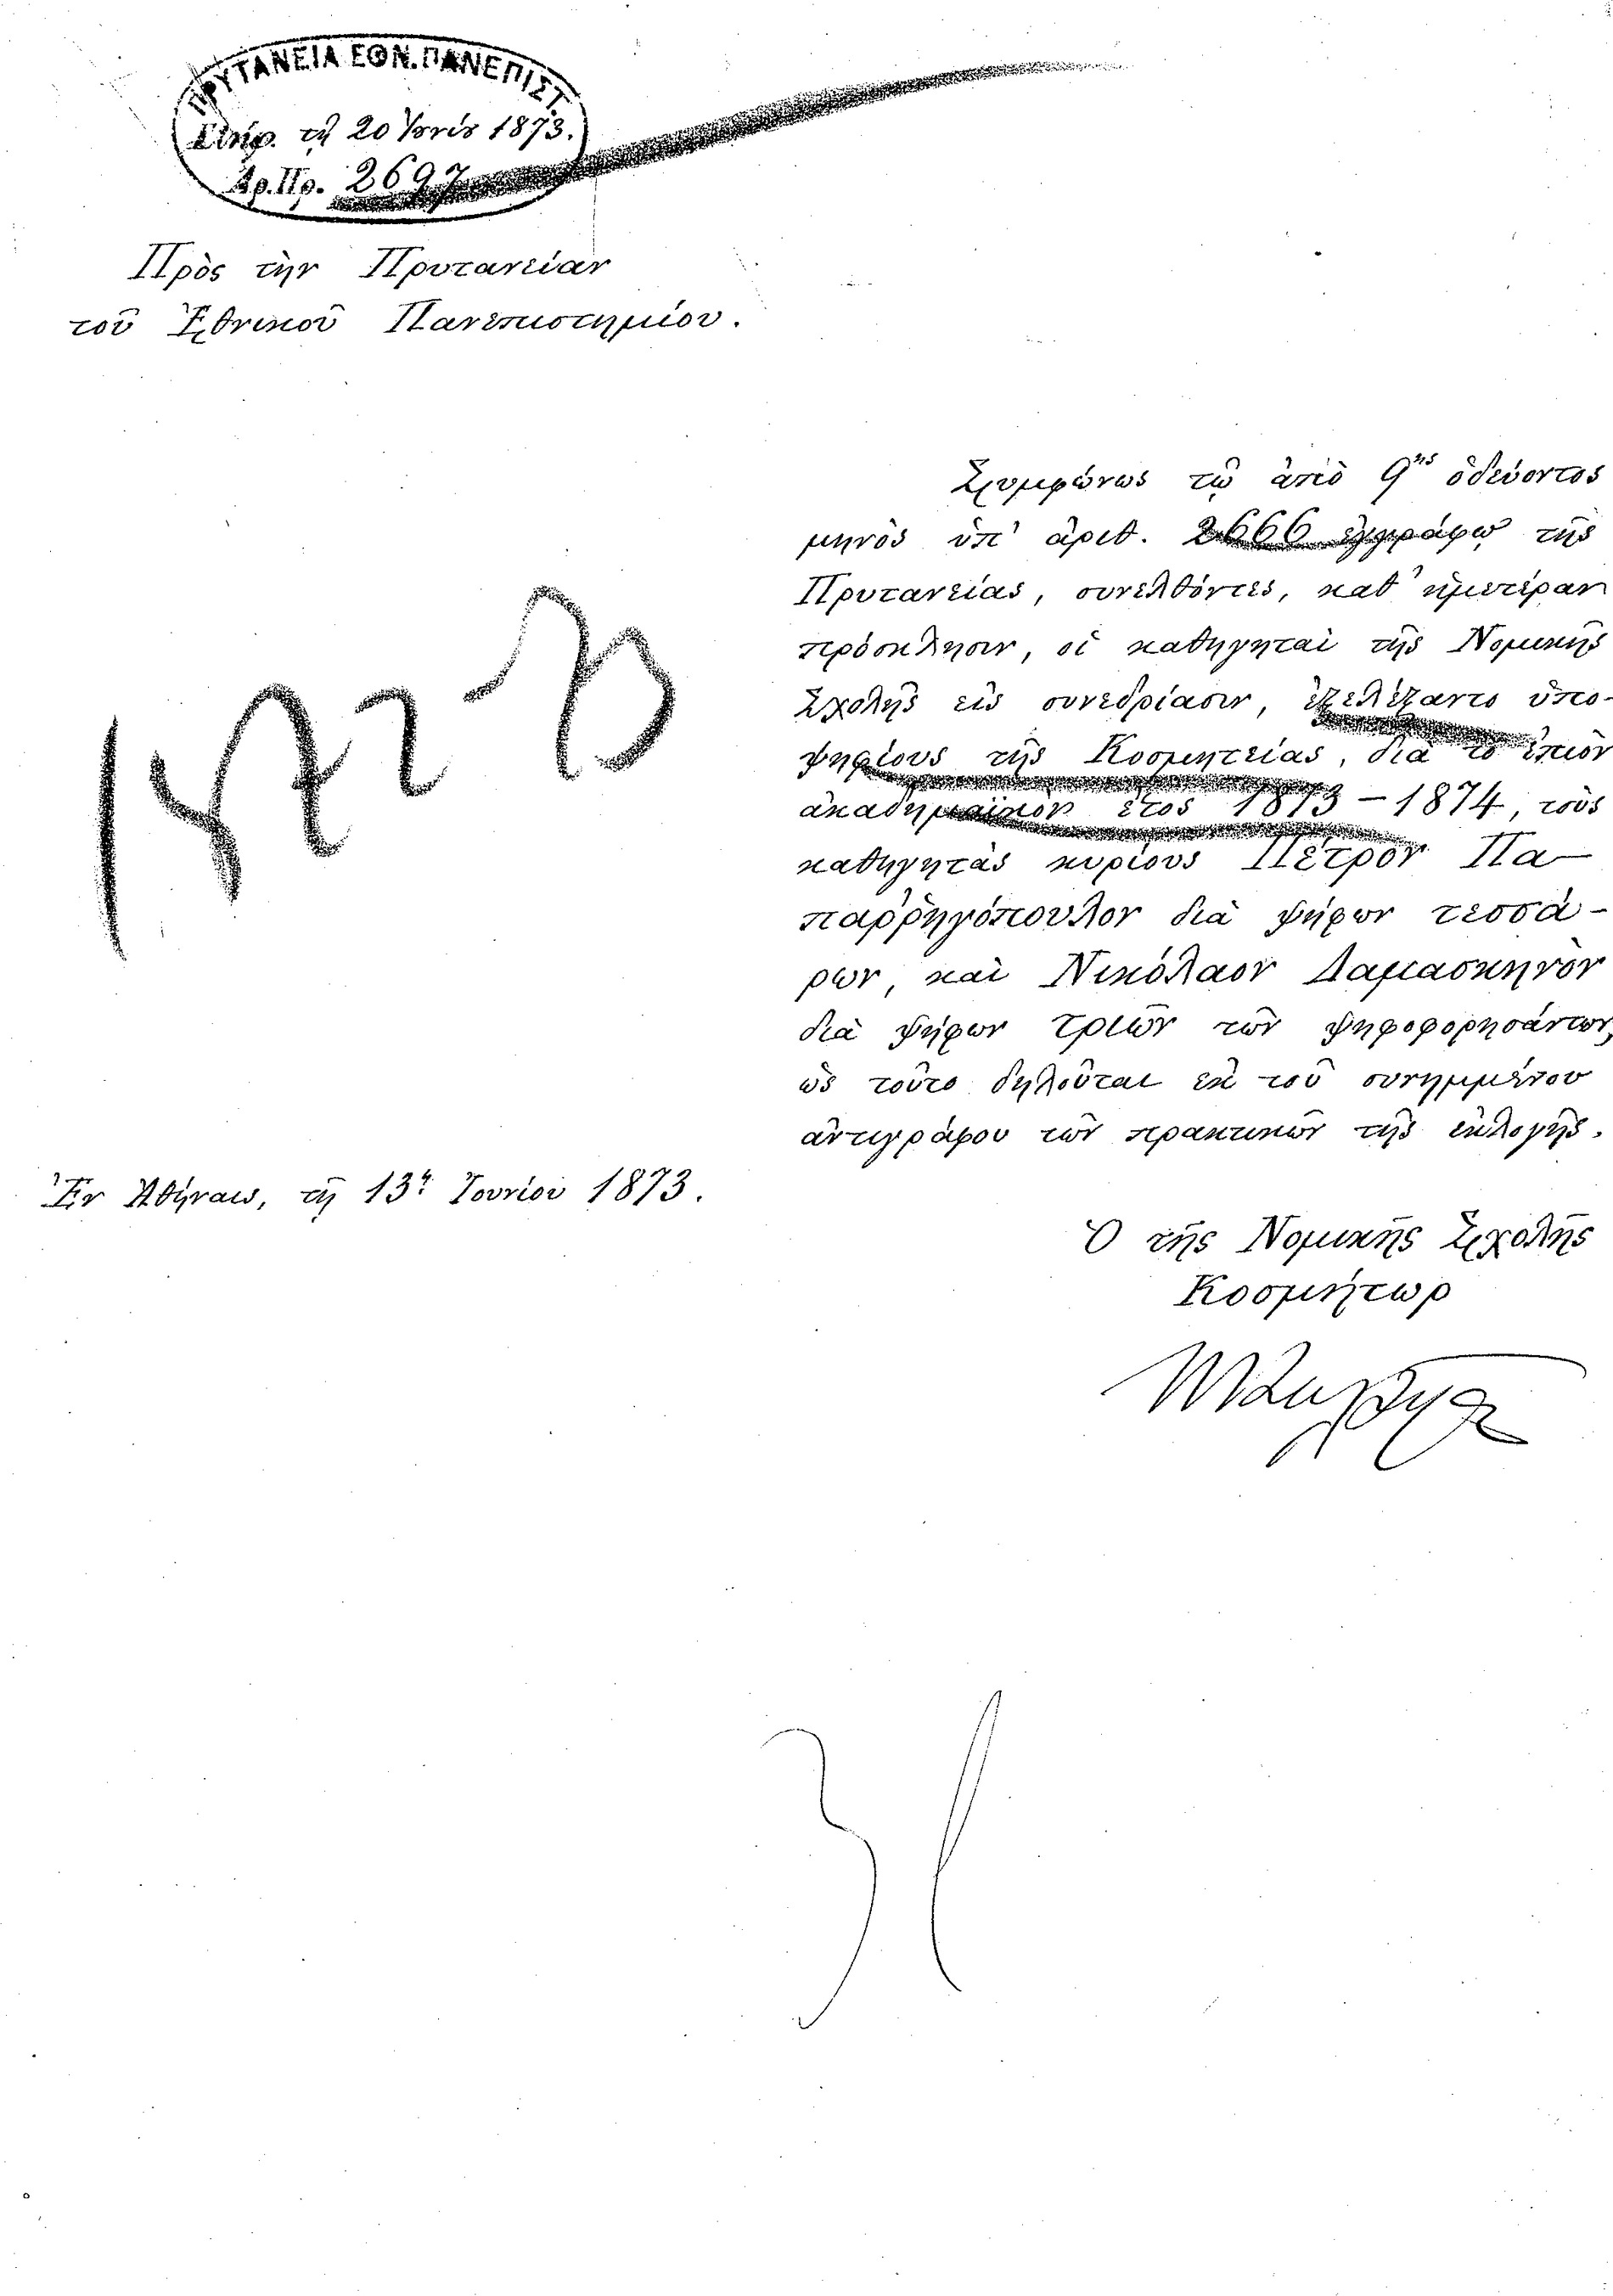 ΠΡΥΤΑΝΕΙΑ ΕΘΝ. ΠΑΝΕΠΙΣΤ.
τῇ 20 1873.
Ἀρ. Πρ. 2697
Πρὸς τὴν Πρυτανείαν
τοῦ Ἐθνικοῦ Πανεπιστημίου.
1872-73
Συμφώνως τῷ ἀπὸ 9ης ὁδεύοντος
μηνὸς ὑπ' ἀριθ. 2666 ἐγγράφῳ τῆς
Πρυτανείας, συνελθόντες, καθ' ἡμετέραν
πρόσκλησιν, οἱ καθηγηταὶ τῆς Νομικῆς
Σχολῆς εἰς συνεδρίασιν, ἐξελέξαντο ὑπο-
ψηφίους τῆς Κοσμητείας, διὰ τὸ ἐπιὸν
ἀκαδημαϊκὸν ἔτος 1873 - 1874, τοὺς
καθηγητὰς κυρίους Πέτρον Πα-
παρρηγόπουλον διὰ ψήφων τεσσά-
ρων, καὶ Νικόλαον Δαμασκηνὸν
διὰ ψήφων τριῶν τῶν ψηφοφορησάντων,
ὡς τοῦτο δηλοῦται ἐκ τοῦ συνημμένου
ἀντιγράφου τῶν πρακτικῶν τῆς ἐκλογῆς.
Ἐν Ἀθήναις, τῇ 13ῃ Ἰουνίου 1873.
Ὁ τῆς Νομικῆς Σχολῆς
Κοσμήτωρ